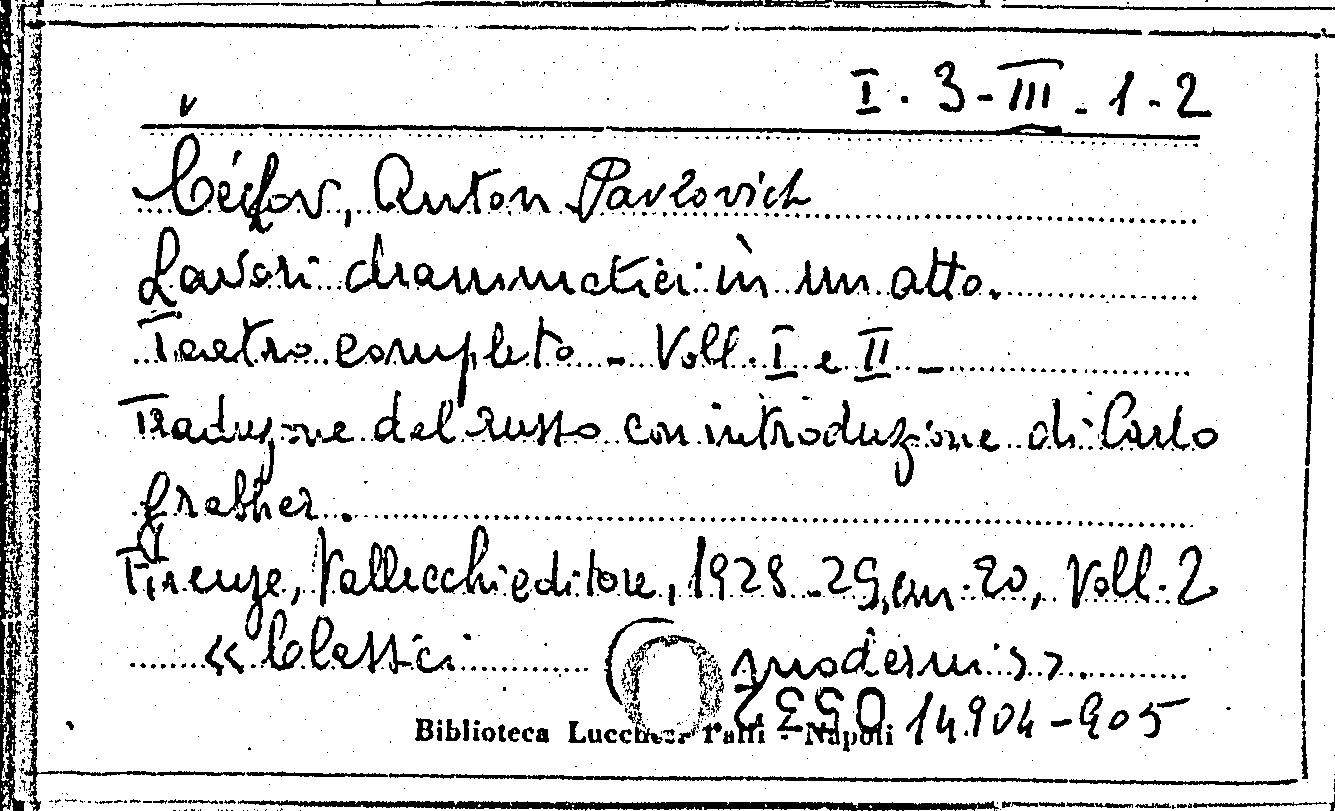 I. 3-III.1-2
Čécfov, Anton Pavlovich
Lavori drammatici in un atto.
Teatro completo - Voll. I e II -
Traduzione del russo con introduzione di Carlo
Grabher.
Firenze, Vallecchi editore, 1928-29, cm. 20, Voll. 2
«Classici moderni».
Biblioteca Lucchesi Palli - Napoli 14.904-905